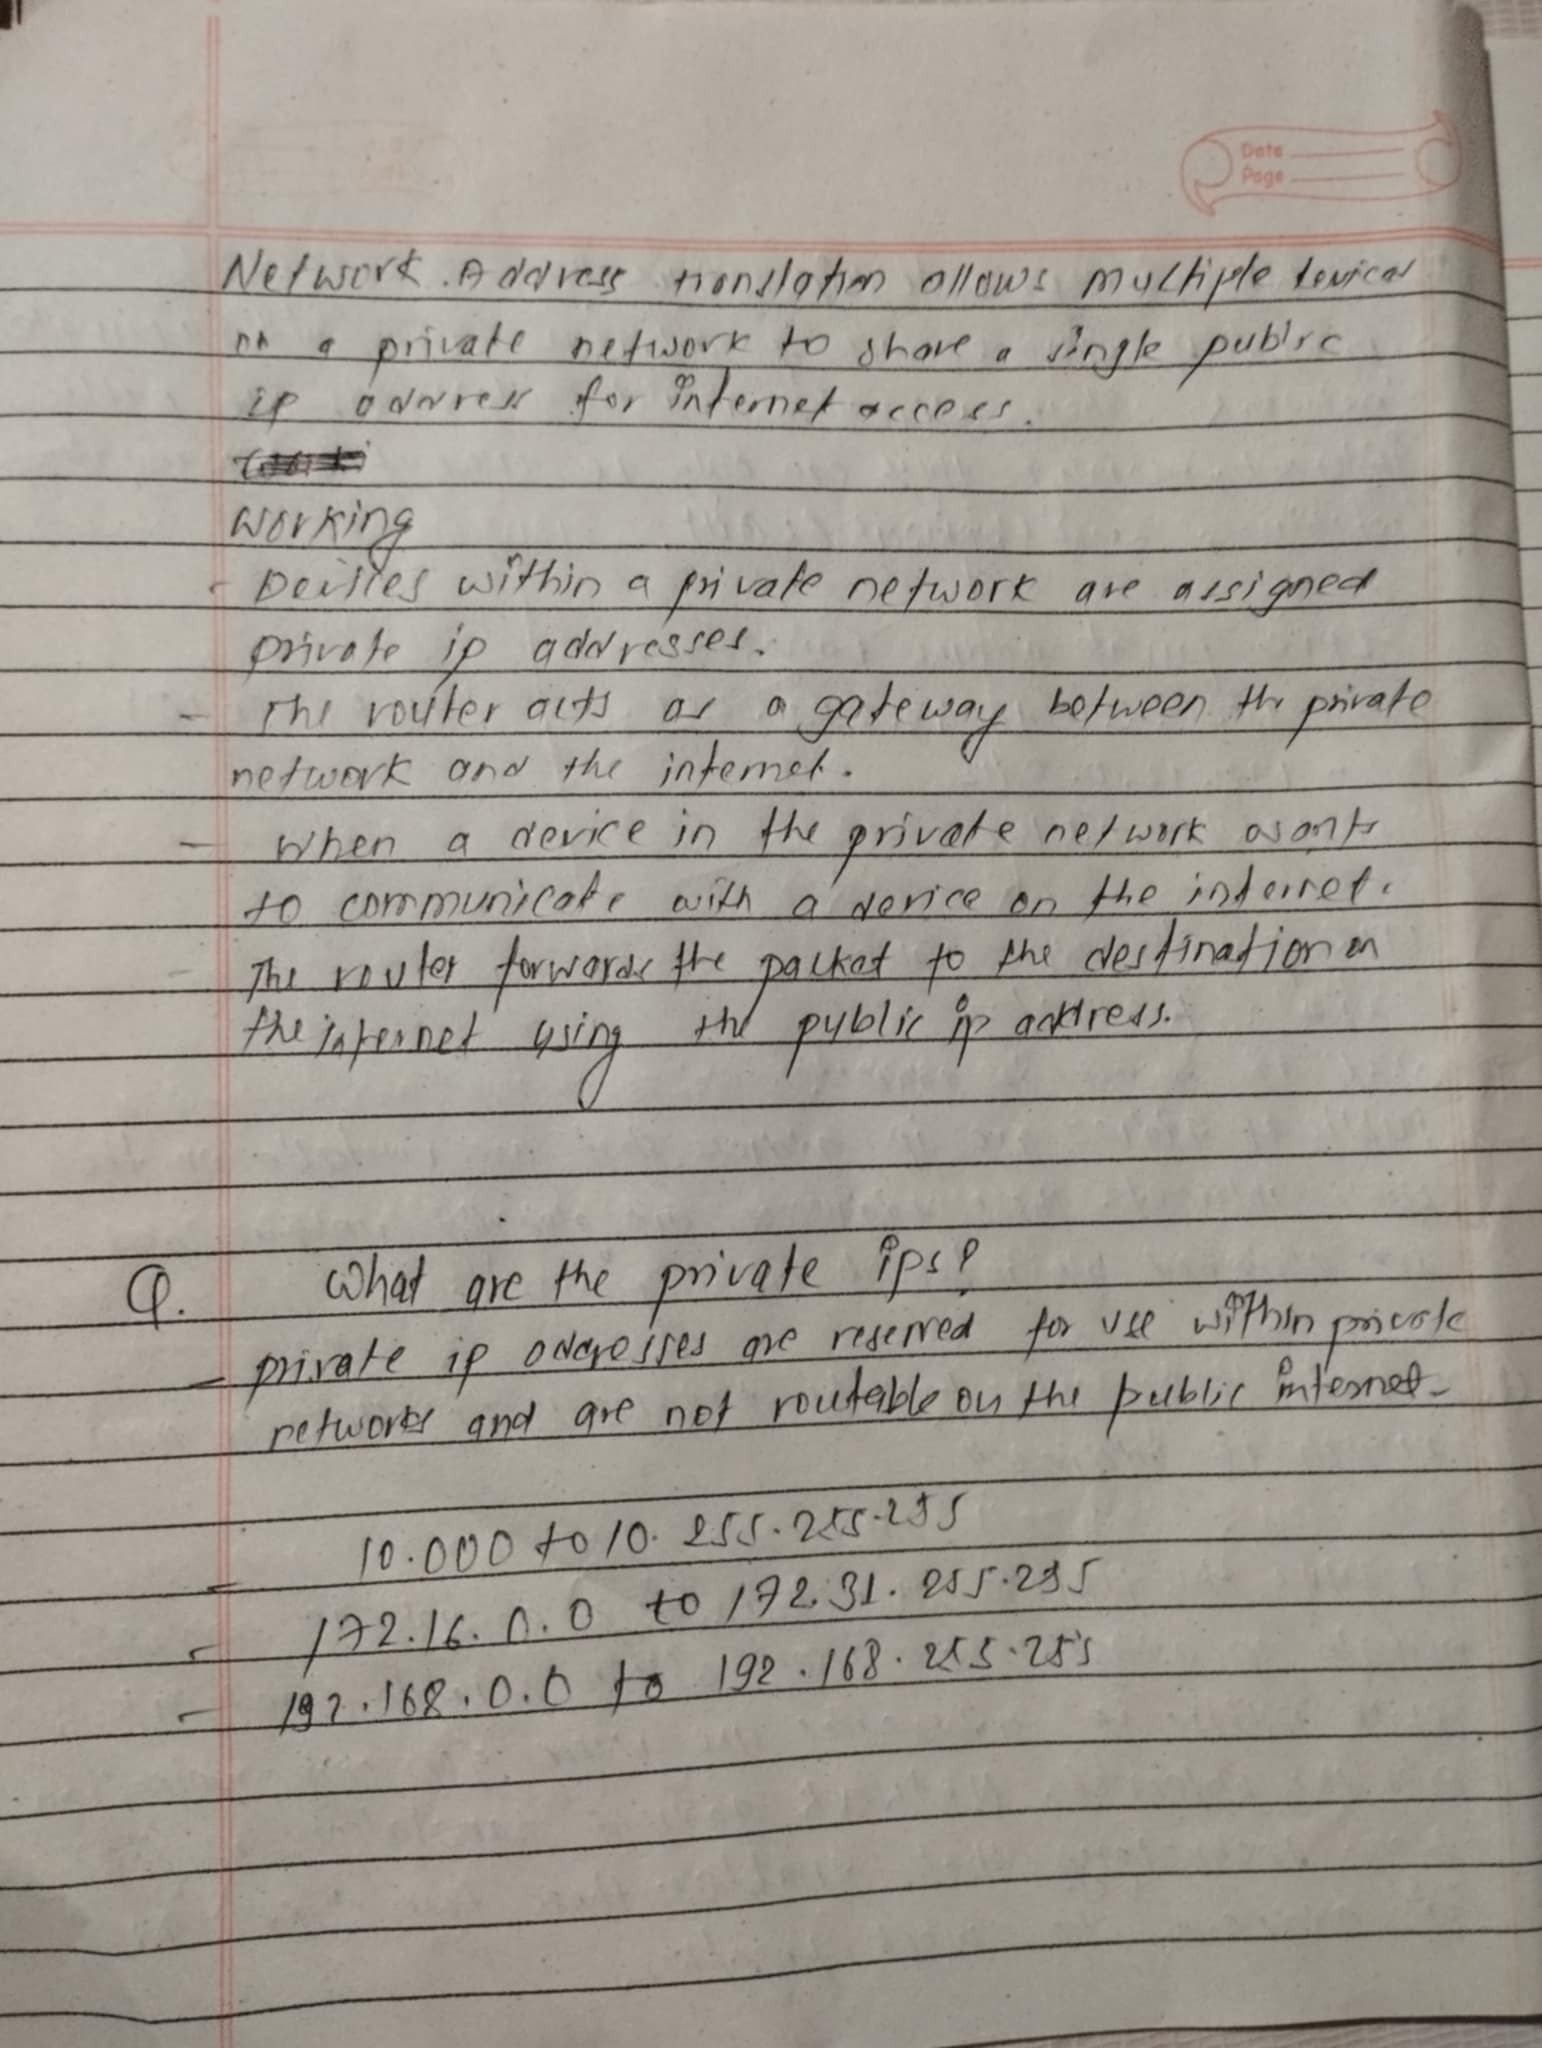 Date
Page
Network Address translation allows multiple devices
on a private network to share a single public
ip address for internet access.
working
- Devises within a private network are assigned
private ip addresses.
- The router acts as a gateway between the private
network and the internet.
- When a device in the private network wants
to communicate with a device on the internet.
- The router forwards the packet to the destination on
the internet using the public ip address.
Q. What are the private ips?
- private ip addresses are reserved for use within private
networks and are not routable on the public internet-
- 10.000 to 10.255.255.255
- 172.16.0.0 to 172.31.255.255
- 192.168.0.0 to 192.168.255.255